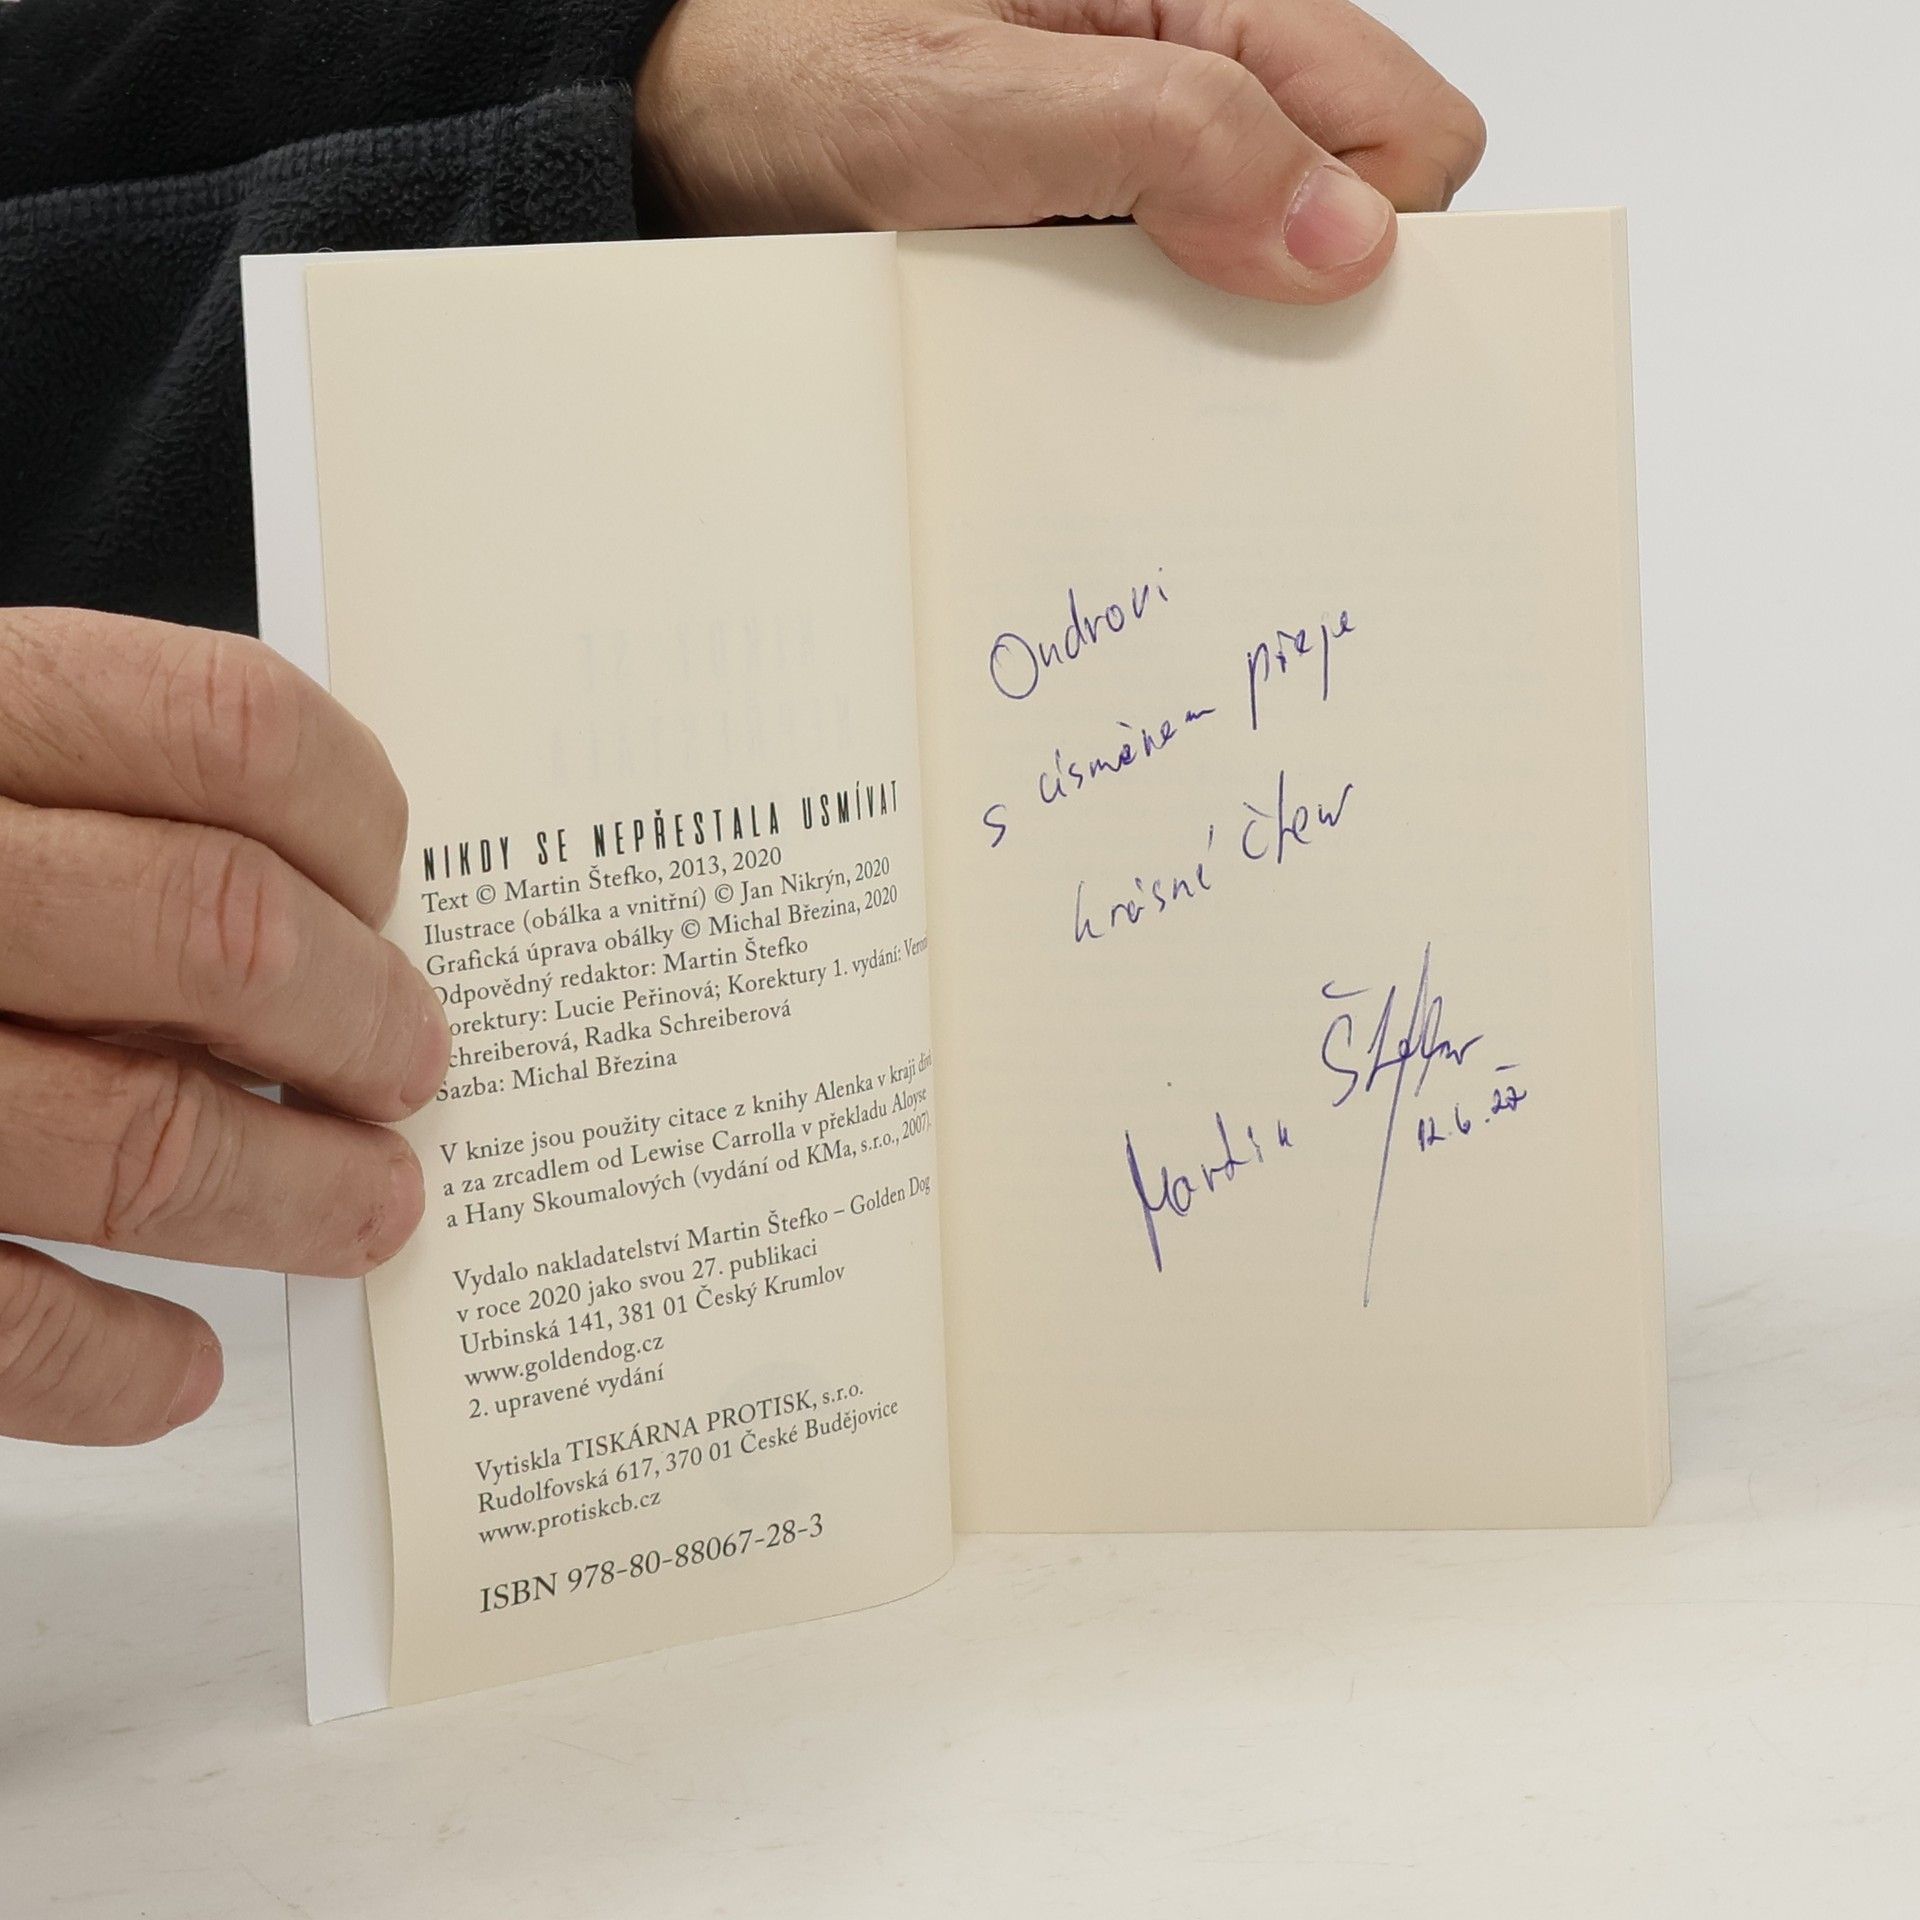 NIKDY SE NEPŘESTALA USMÍVAT
Text © Martin Štefko, 2013, 2020
Ilustrace (obálka a vnitřní) © Jan Nikrýn, 2020
Grafická úprava obálky © Michal Březina, 2020
Odpovědný redaktor: Martin Štefko
orektury: Lucie Peřinová; Korektury 1. vydání: Veron
chreiberová, Radka Schreiberová
Sazba: Michal Březina
V knize jsou použity citace z knihy Alenka v kraji divů
a za zrcadlem od Lewise Carrolla v překladu Aloyse
a Hany Skoumalových (vydání od KMa, s.r.o., 2007).
Vydalo nakladatelství Martin Štefko – Golden Dog
v roce 2020 jako svou 27. publikaci
Urbinská 141, 381 01 Český Krumlov
www.goldendog.cz
2. upravené vydání
Vytiskla TISKÁRNA PROTISK, s.r.o.
Rudolfovská 617, 370 01 České Budějovice
www.protiskcb.cz
ISBN 978-80-88067-28-3
Ondrovi
s přeje
krásné čtení
Martin Štefko
12.6.22